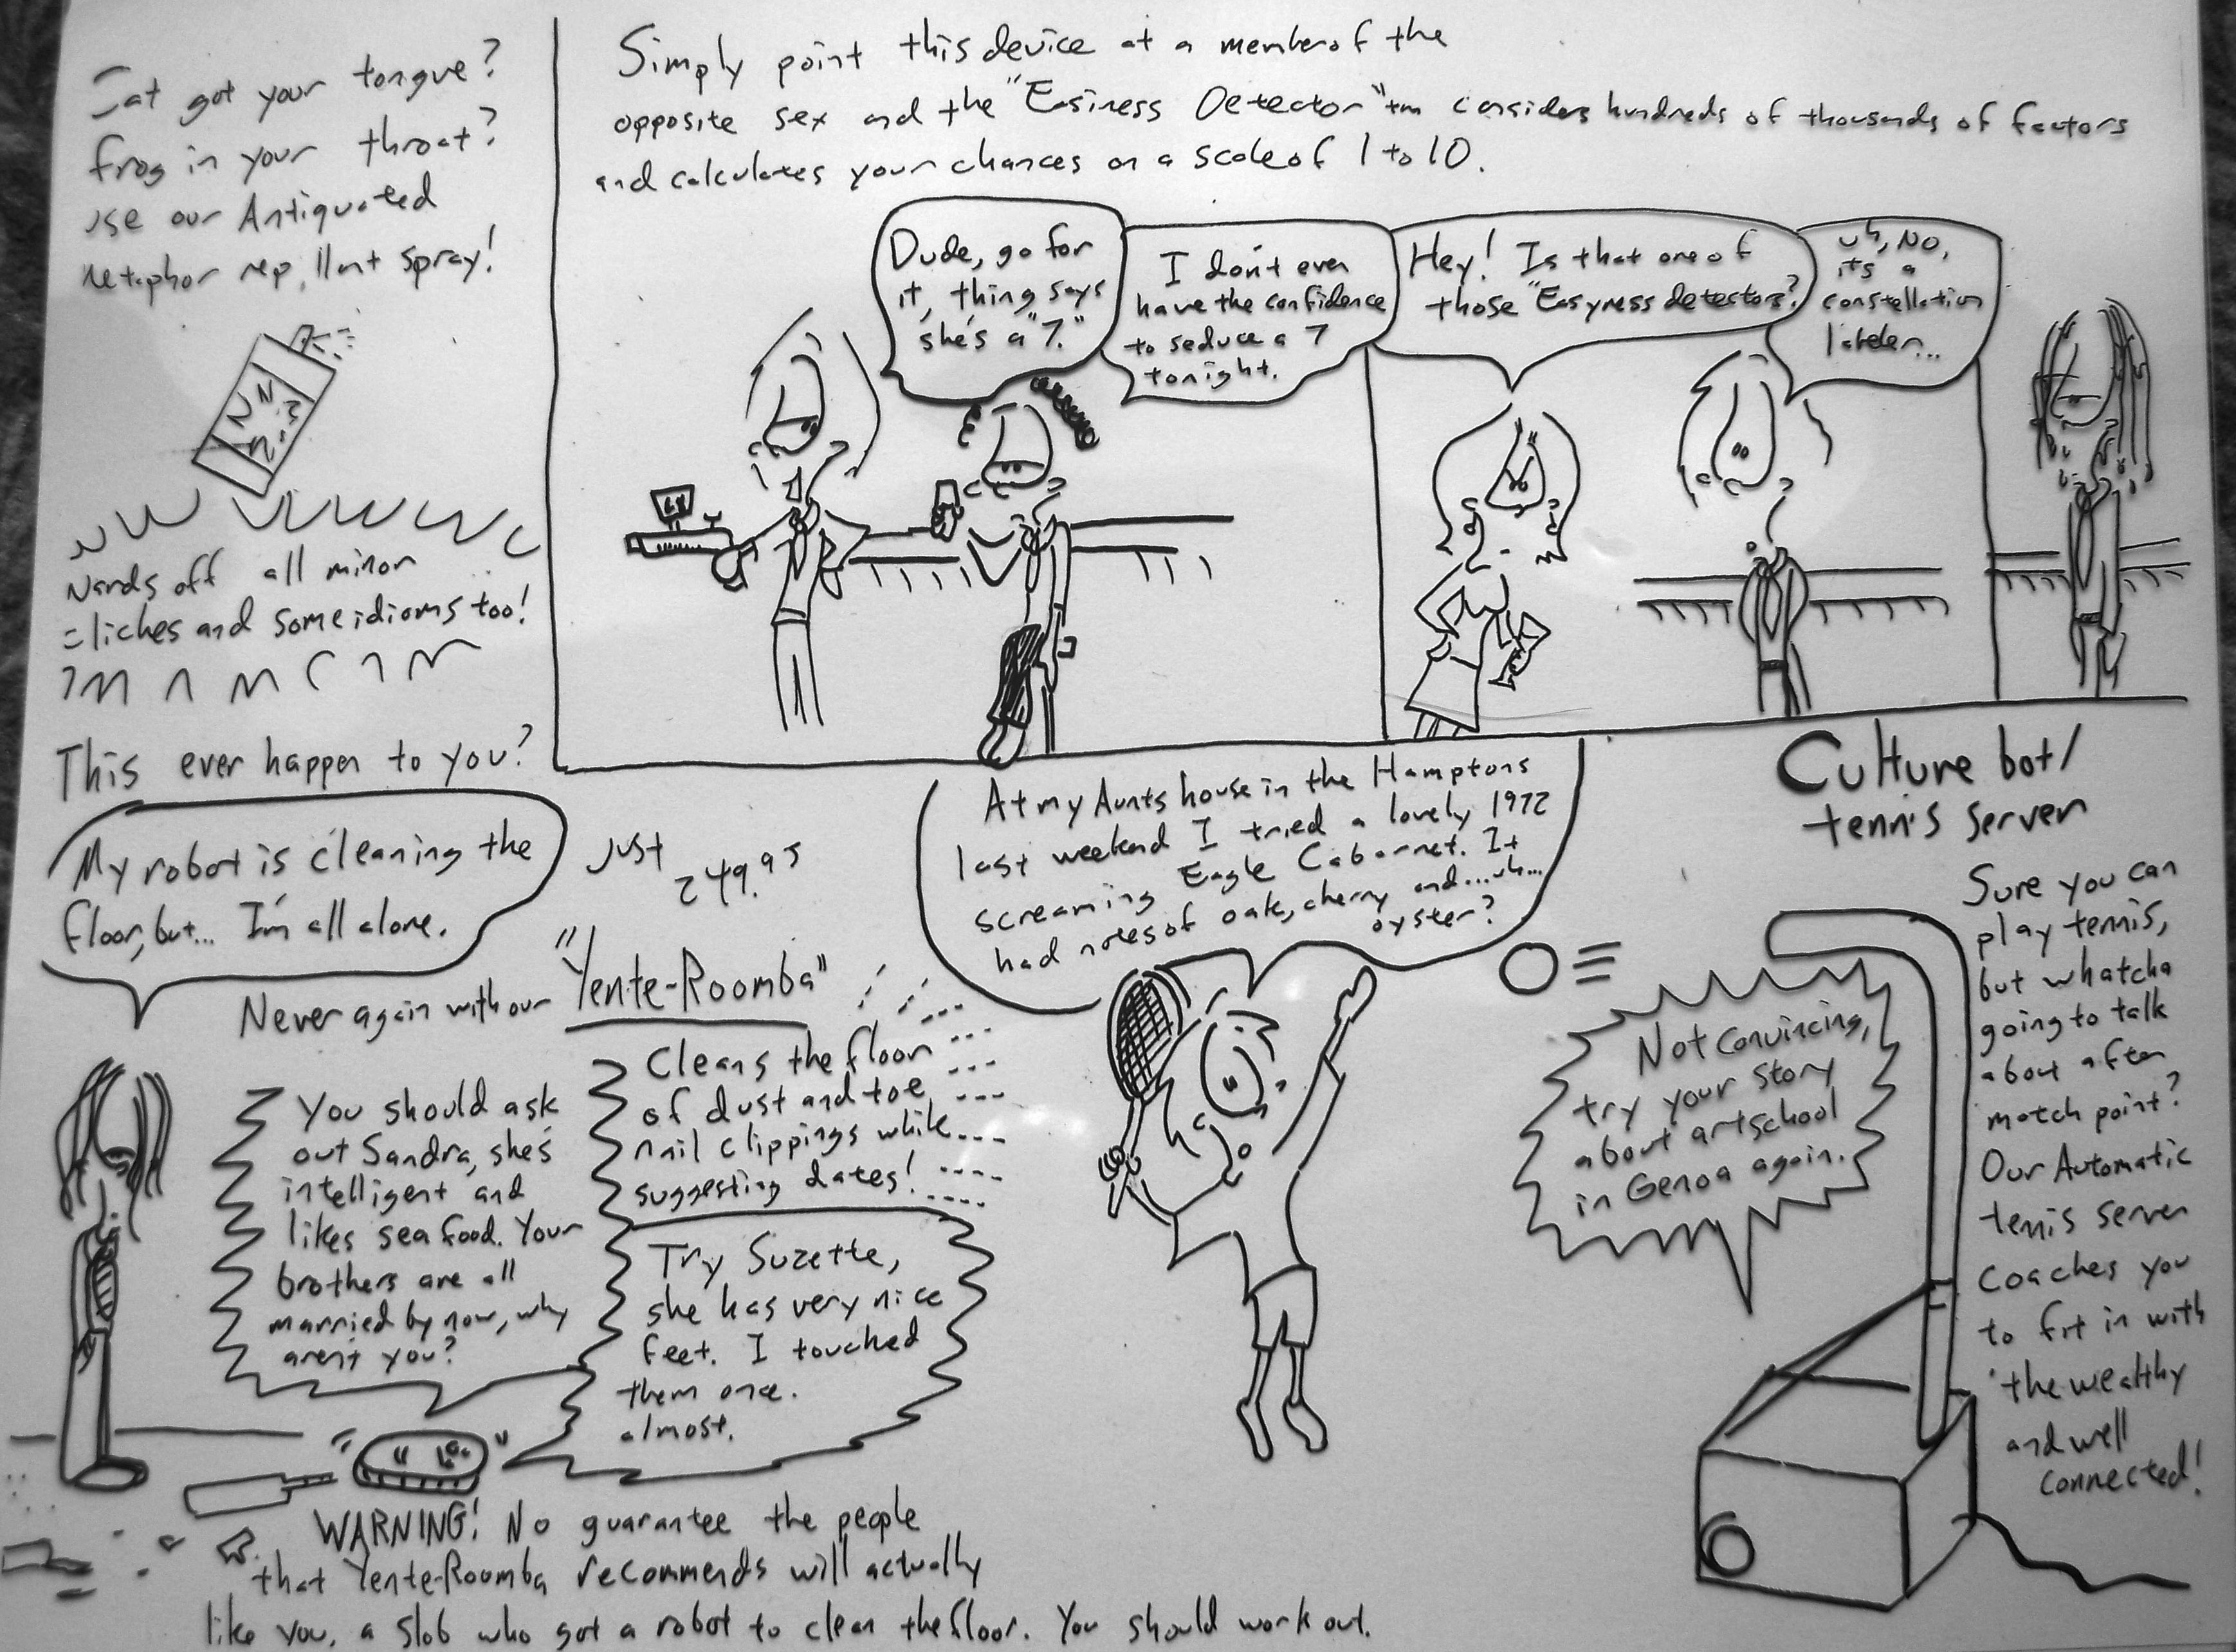 Cat got your tongue?
frog in your throat?
use our Antiquated
Metaphor repellant spray!
Wards off all minor
cliches and some idioms too!
Simply point this device at a member of the
opposite sex and the "Easiness Detector"tm considers hundreds of thousands of factors
and calculates your chances on a scale of 1 to 10.
Dude, go for
it, thing says
she's a "7."
I don't even
have the confidence
to seduce a 7
tonight.
Hey! Is that one of
those "Easyness detectors?
uh, No,
its a
constellation
labeler...
This ever happen to you?
My robot is cleaning the
floor, but... I'm all alone.
Just
249.95
Never again with our "Yente-Roomba"
You should ask
out Sandra, she's
intelligent and
likes sea food. Your
brothers are all
married by now, why
aren't you?
Cleans the floor
of dust and toe
nail clippings while
suggesting dates!
Try Suzette,
she has very nice
feet. I touched
them once.
almost.
WARNING! No guarantee the people
that Yente-Roomba recommends will actually
like you, a slob who got a robot to clean the floor. You should work out.
At my Aunts house in the Hamptons
last weekend I tried a lovely 1972
screaming Eagle Cabarnet. It
had notes of oak, cherry and...uh...
oyster?
Culture bot/
tennis server
Not convincing,
try your story
about artschool
in Genoa again.
Sure you can
play tennis,
but whatcha
going to talk
about after
match point?
Our Automatic
tennis server
coaches you
to fit in with
the wealthy
and well
connected!